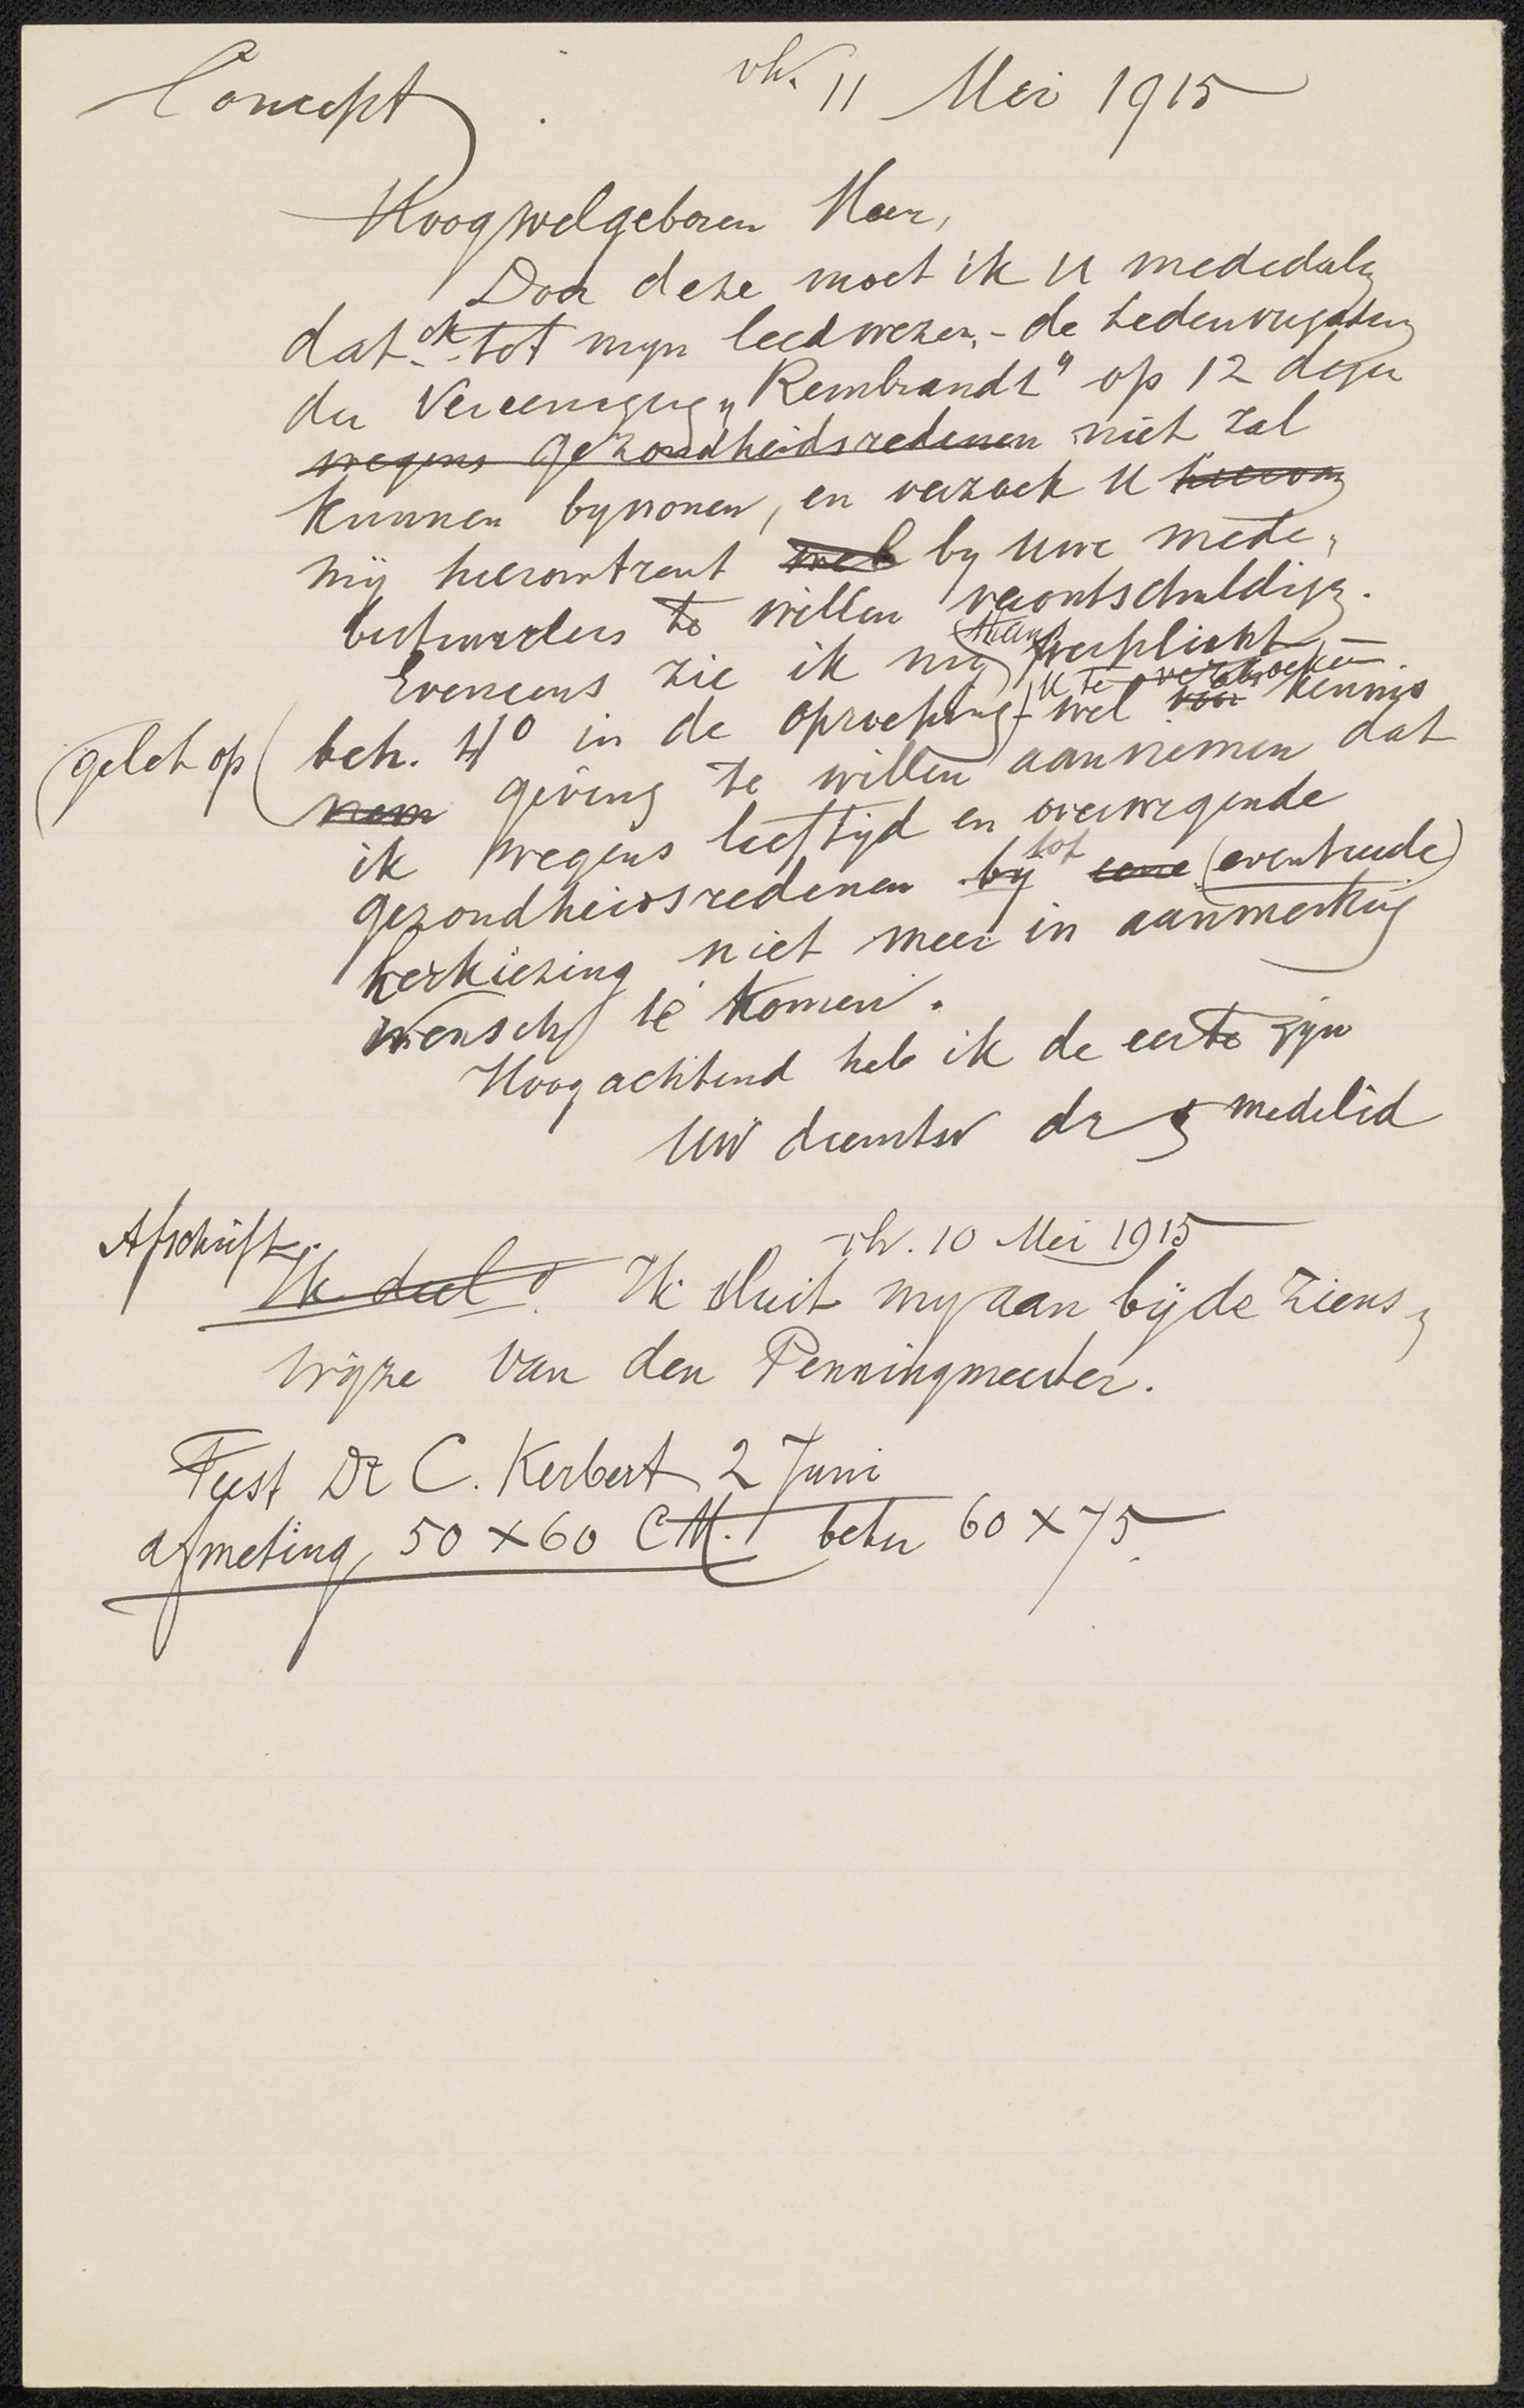 Concept. 11 Mei 1915
Hoogwelgeboren Heer,
Door deze moet ik U mededeelen
dat ik - tot mijn leedwezen, - de Ledenvergadering
der Vereeniging „Rembrandt" op 12 dezer
wegens gezondheidsredenen niet zal
kunnen bijwonen, en verzoek U hiervan
mij hieromtrent wel bij Uwe mede„
bestuurders te willen verontschuldigen.
Eveneens zie ik mij thans verplicht
U te verzoeken
gelet op beh. 4º in de oproeping - wel voor kennis
nem geving te willen aannemen dat
ik wegens leeftijd en overwegende
gezondheidsredenen bij tot eene (eventueele)
herkiezing niet meer in aanmerking
wensch te komen.
Hoogachtend heb ik de eer te zijn
Uw dienstw dr medelid
Afschrift. 10 Mei 1915
Ik deel Ik sluit mij aan bij de ziens„
wijze van den Penningmeester.
Feest Dr C. Kerbert 2 Juni
afmeting 50 x 60 CM. beter 60 x 75.